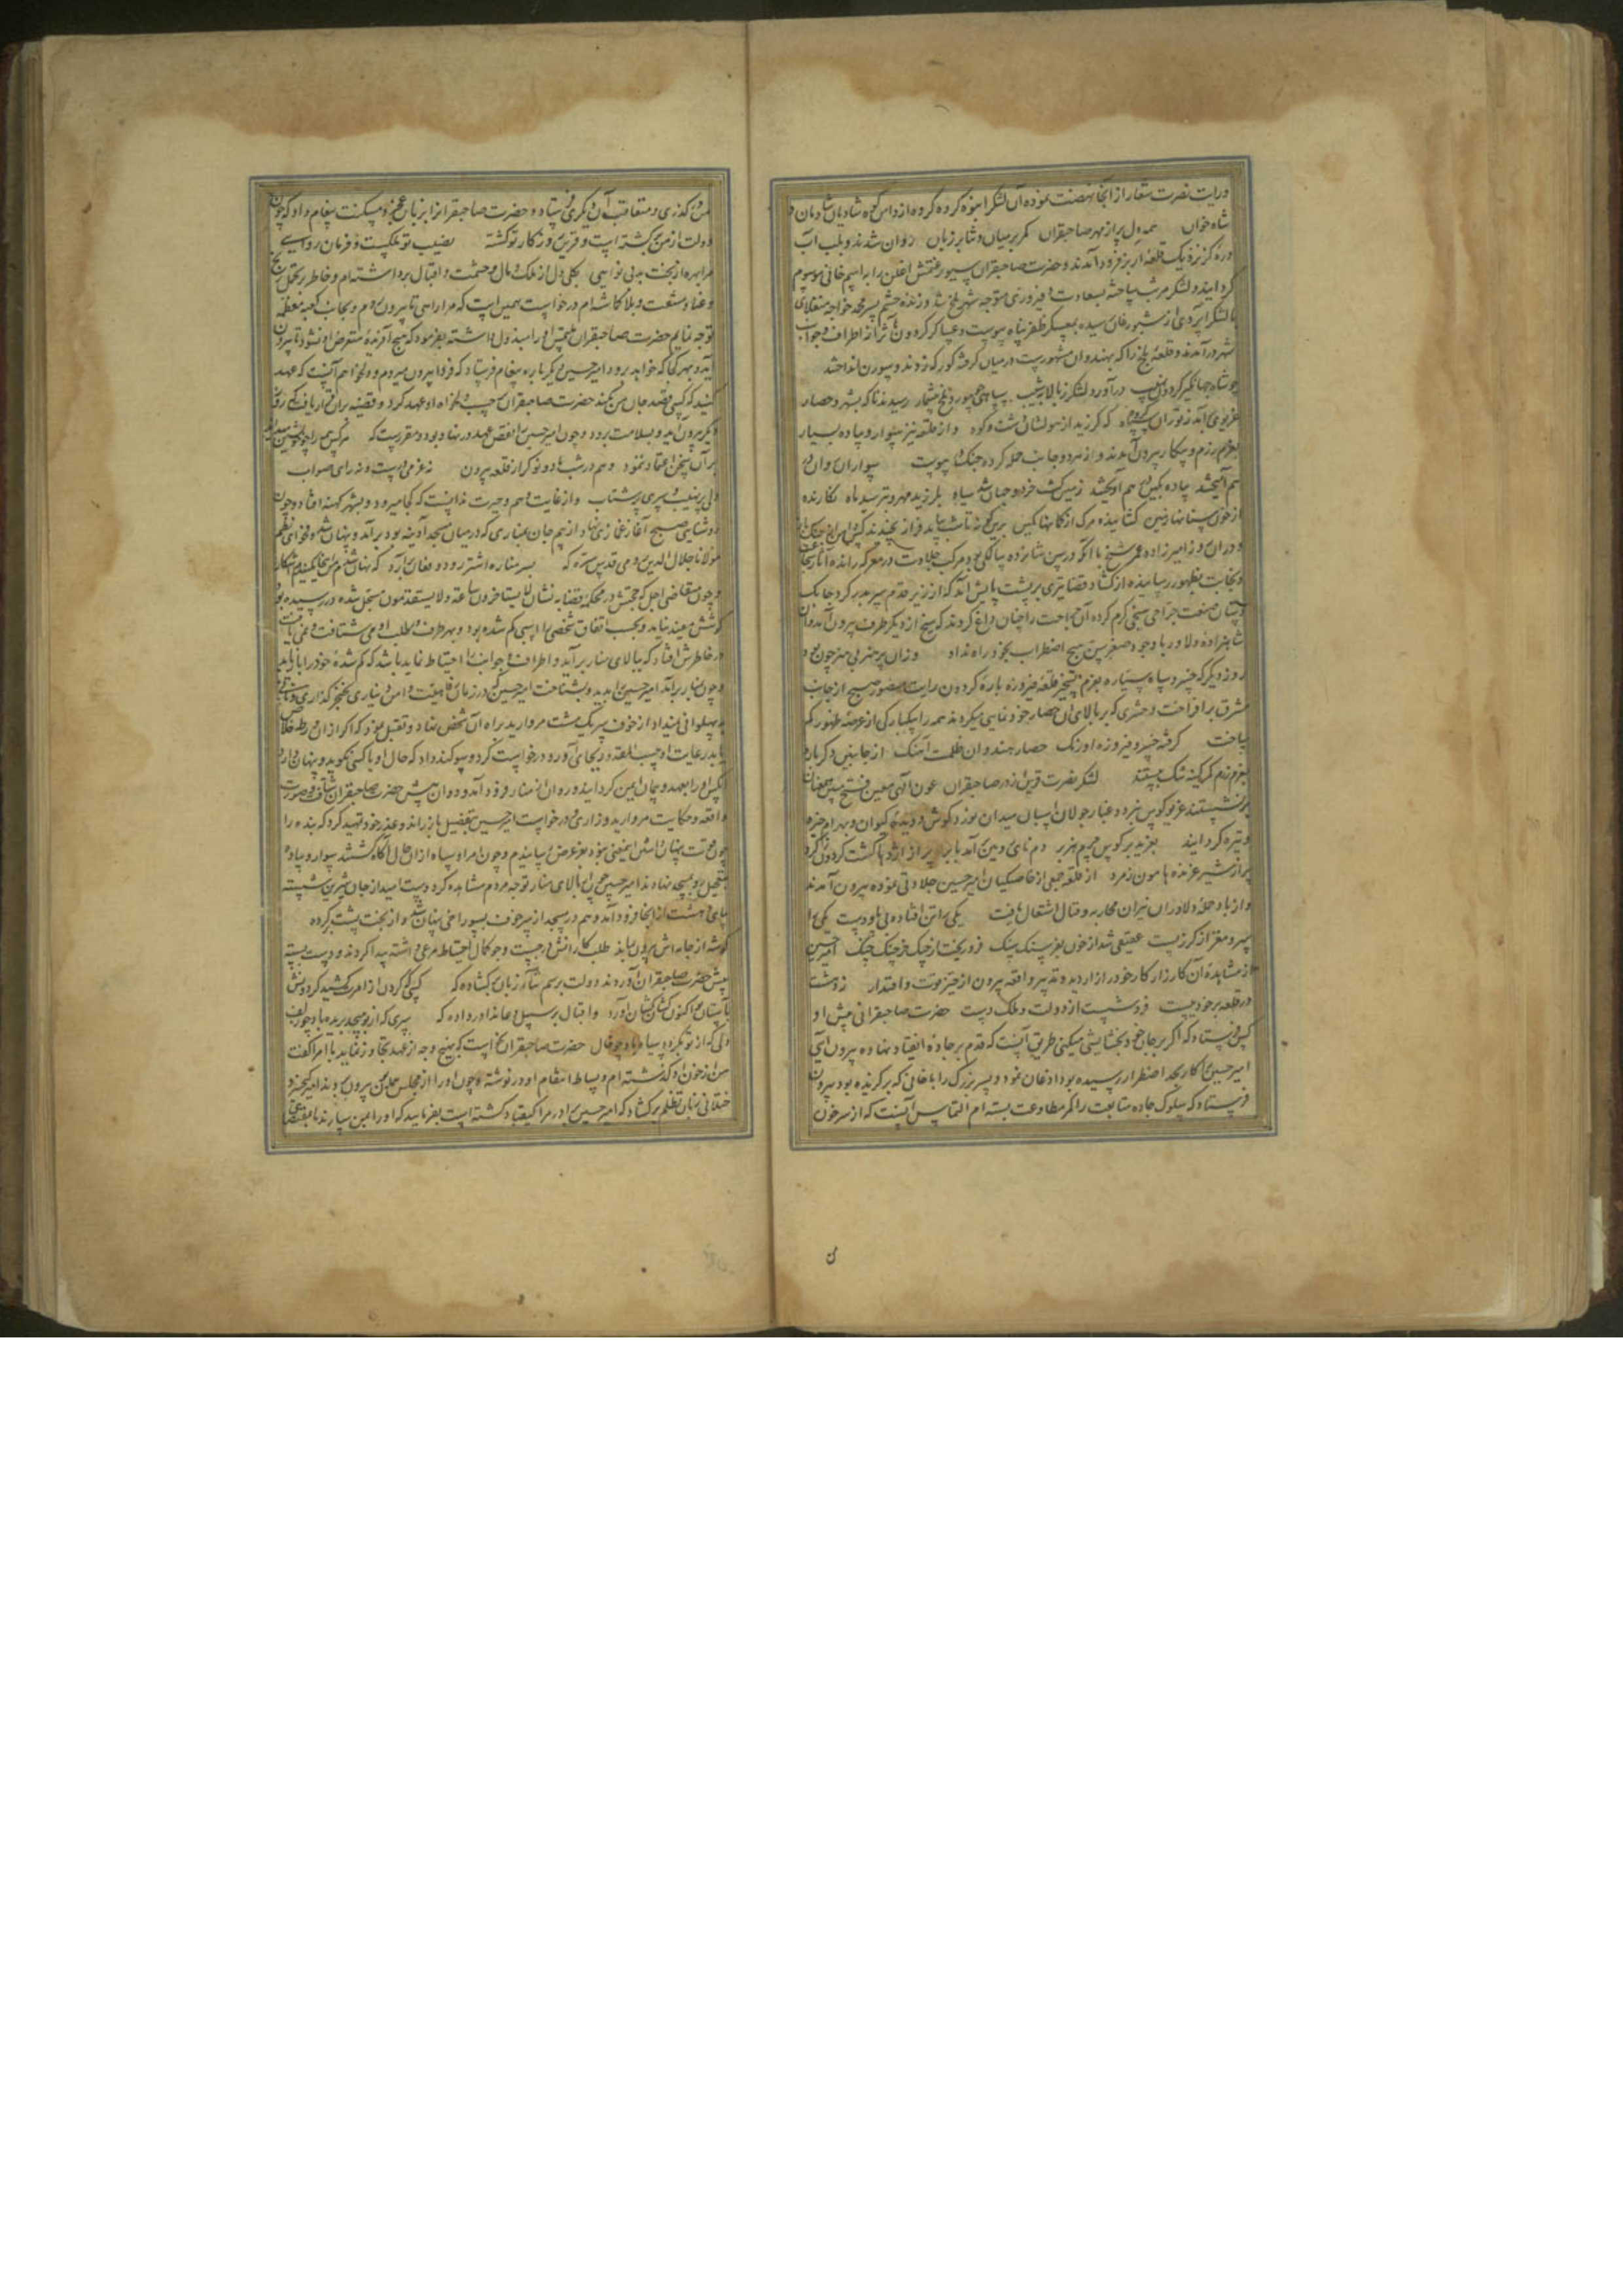 ورایت نصرت شعار از آنجا نهضت نموده آن لشکر انبوه کروه کروه از دامن کوه شادیان شادمان و
شاه خوان همه دل پر از مهر صاحبقران کمر بر میان و ثنا بر زبان روان شدند و بلب آب
دره کز نزدیک قلعه اربز فرود آمدند و حضرت صاحبقران سیورغتمش اغلن را براسم خانی موسوم
کردانید و لشکر مرتب ساخته بسعادت و فیروزی متوجه شهر بلخ شد و زنده حشم پسر محمد خواجه
با لشکر ایردی از شبورغان رسیده بمعسکر ظفر پناه پیوست و عساکر کردون مآثر از اطراف و جوانب
شهر درآمدند و قلعه بلخ را که بهندوان مشهورست در میان کرفته کورکه زدند و سورن انداختند
چو شاه جهانگیر کردون درآورد لشکر ز بالا بشیب سپاهی چو مور و ملخ بیشمار رسیدند تا که بشهر و حصار
غریوی برآمد ز توران سپاه که کر زید از هولشان دشت و کوه و از قلعه نیز سوار و پیاده بسیار
بعزم رزم و پیکار بیرون آمدند و از هر دو جانب حمله کرده جنک پیوست سواران
هم آمیختند پیاده بکین در هم آویختند زمین کشت خرد و جهان شد سیاه بلرزید مهر و بترسید ماه نکارنده
از خون سنانها زمین کشاینده مرک از کمانها کمین
و در آن روز امیرزاده عمر شیخ با آنکه در سن شانزده سالکی بود مرکب جلادت در معرکه رانده آثار شجاعت
و نجابت بظهور رسانیده از کشاد قضا تیری بر پشت پایش آمد که از زیر قدم سر بدر کرد چابک
دستان صنعت جراحی سیخی کرم کرده آن جراحت را چنان داغ کردند که سیخ از دیکر طرف بیرون شد و آن
شاهزاده دلاور با وجود صغر سن هیچ اضطراب بخود راه نداد
روز دیکر که خسرو سپاه ستاره بعزم تسخیر قلعه فیروزه باره کردون رایت صبح از جانب
مشرق برافراخت و حشری که بر بالای آن حصار خودنمایی میکردند همه را یکبارکی از عرصه ظهور کم
ساخت کرفته خسرو فیروزه اورنک حصار هندوان ظلمت آهنک از جانبین دکرباره
بعزم رزم کمر کینه تنک بستند لشکر نصرت قرین از در صاحبقران عون الهی معین و فتح مبین
برنشستند غریو کوس نبرد و غبار جولان اسبان میدان نورد کوش و دیده کیوان و بهرام خیره
و تیره کردانید بغرید بر کوس چرم هزبر دم نای رویین برآمد بابر پر از اژدها کشت کردون
پر از شیر غرنده هامون زمرد از قلعه جمعی از خاصکیان امیر حسین جلادتی نموده بیرون آمدند
و از باد حمله دلاوران نیران محاربه و قتال اشتعال یافت یکی را تن افتاده بی پا و دست یکی را
سر و مغز از کرز پست عقیقی شد از خون بفرسنک سنک فرو ریخت امیر حسین
از مشاهده آن کارزار کار خود را زار دید و تدبیر واقعه بیرون از حیز قوت و اقتدار
در قلعه بر خود ببست فروشست از دولت و ملک دست حضرت صاحبقرانی پیش او
کس فرستاد که اکر بر جان خود بخشایشی میکنی طریق آنست که قدم بر جاده انقیاد نهاده بیرون آیی
امیر حسین را کار بحد اضطرار رسیده بود اذعان نمود و پسر بزرک را با خانی که برکزیده بود بیرون
فرستاد که سلوک جاده متابعت را کمر مطاوعت بسته ام التماس آنست که از سر خون
من درکذری و متعاقب آن دیکری فرستاد و حضرت صاحبقران را بزبان عجز و مسکنت پیغام داد که چون
دولت از من برکشته است و قرین روزکار تو کشته نصیب تو ملکست و فرمان روایی
مرا بهره از بخت بد بی نوایی بکلی دل از ملک و مال و حشمت و اقبال برداشته ام و خاطر بر تحمل رنج
و عنا و مشقت و بلا کماشته ام درخواست همین است که مرا راهی تا بیرون روم و بجانب کعبه معظمه
توجه نمایم حضرت صاحبقران ملتمس او را مبذول داشته بفرمود که هیچ آفریده متعرض او نشود تا بیرون
آید و بهر کجا که خواهد برود امیر حسین دیکر باره پیغام فرستاد که فردا بیرون میروم و میخواهم آنست که عهد
کنید که کسی قصد جان من نکند حضرت صاحبقران حسب دلخواه او عهد کرد
دیکر بیرون آید و بسلامت برود و چون امیر حسین را نقض عهد در نهاد بود و مقررست که هر کس همه را چو خویشتن پندارد
بر آن سخن اعتماد ننمود و هم در شب با دو نوکر از قلعه بیرون نه عزمی درست و نه رای صواب
دلی پر نهیب و سری پر شتاب و از غایت وهم و حیرت ندانست که کجا میرود و بشهر کهنه افتاد و چون
روشنایی صبح آغاز غمازی نهاد از بیم جان بمناری که در میان مسجد آدینه بود برآمد و پنهان شد و فحوای نظم
مولانا جلال الدین رومی قدس سره که بسر مناره اشتر رود و فغان برآرد که نهان شدم من اینجا مکنیدم آشکارا
و چون متقاضی اجل که حجتش در محکمه قضا به نشان لا یستاخرون ساعة ولا یستقدمون مسجل شده در رسیده بود
کوشش مفید نیاید و بحسب اتفاق شخصی را اسبی کم شده بود و بهر طرف در طلب او می شتافت و نمی یافت
در خاطرش افتاد که ببالای منار برآید و اطراف و جوانب را احتیاط نماید باشد که کم شده خود را باز یابد
و چون بمنار برآمد امیر حسین را بدید و بشناخت امیر حسین که در زمان رفاهیت و امن دیناری بخنجر کذاری و نانی
به پهلوانی نمیداد از خوف سر یک مشت مروارید براه آن شخص نهاد و تقبل نمود که اکر از آن ورطه خلاص
یابد رعایت او حسب المقدور بجای آورد و درخواست کرد و سوکند داد که حال او با کسی نکوید و پنهان دارد
آنکس او را بعهد و پیمان ایمن کردانید و روان از منار فرود آمد و دوان پیش حضرت صاحبقران شتافت و صورت
واقعه و حکایت مروارید و زاری و درخواست امیر حسین بتفصیل باز راند و عذر خود تمهید کرد که بنده را
چون قوت پنهان داشتن این معنی نبود بعز عرض رسانیدم و چون امرا و سپاه از آن حال آکاه کشتند سوار و پیاده
بتعجیل رو بمسجد نهادند امیر حسین چون از بالای منار توجه مردم مشاهده کرد دست امید از جان شیرین شسته
پای دهشت از آنجا فرود آمد و هم در مسجد از سر خوف بسوراخی پنهان شد و از بخت پشت کرده
کوشه از جامه اش بیرون بماند طلبکارانش در جست و جو کمال احتیاط مرعی داشته پیدا کردند و دست بسته
پیش حضرت صاحبقران آوردند دولت برسم زبان بکشاده که کسی کو کردن از امرت کشید کردونش
بآستان تو اکنون کشان کشان آورد و اقبال بر سبیل دعا ندا در داده که سری که از تو بپیچد بریده باد چو زلف
دلی که از تو بکردد سیاه باد چو خال حضرت صاحبقران نخواست که بهیچ وجه از عهد تجاوز نماید با امرا کفت
من از خون او کذشته ام و بساط انتقام او در نوشته و چون او را از مجلس همایون بیرون بردند امیر کیخسرو
ختلانی زبان تظلم برکشاد که امیر حسین برادر مرا کیقباد کشته است بفرمایید که او را بمن سپارند تا بقصاص